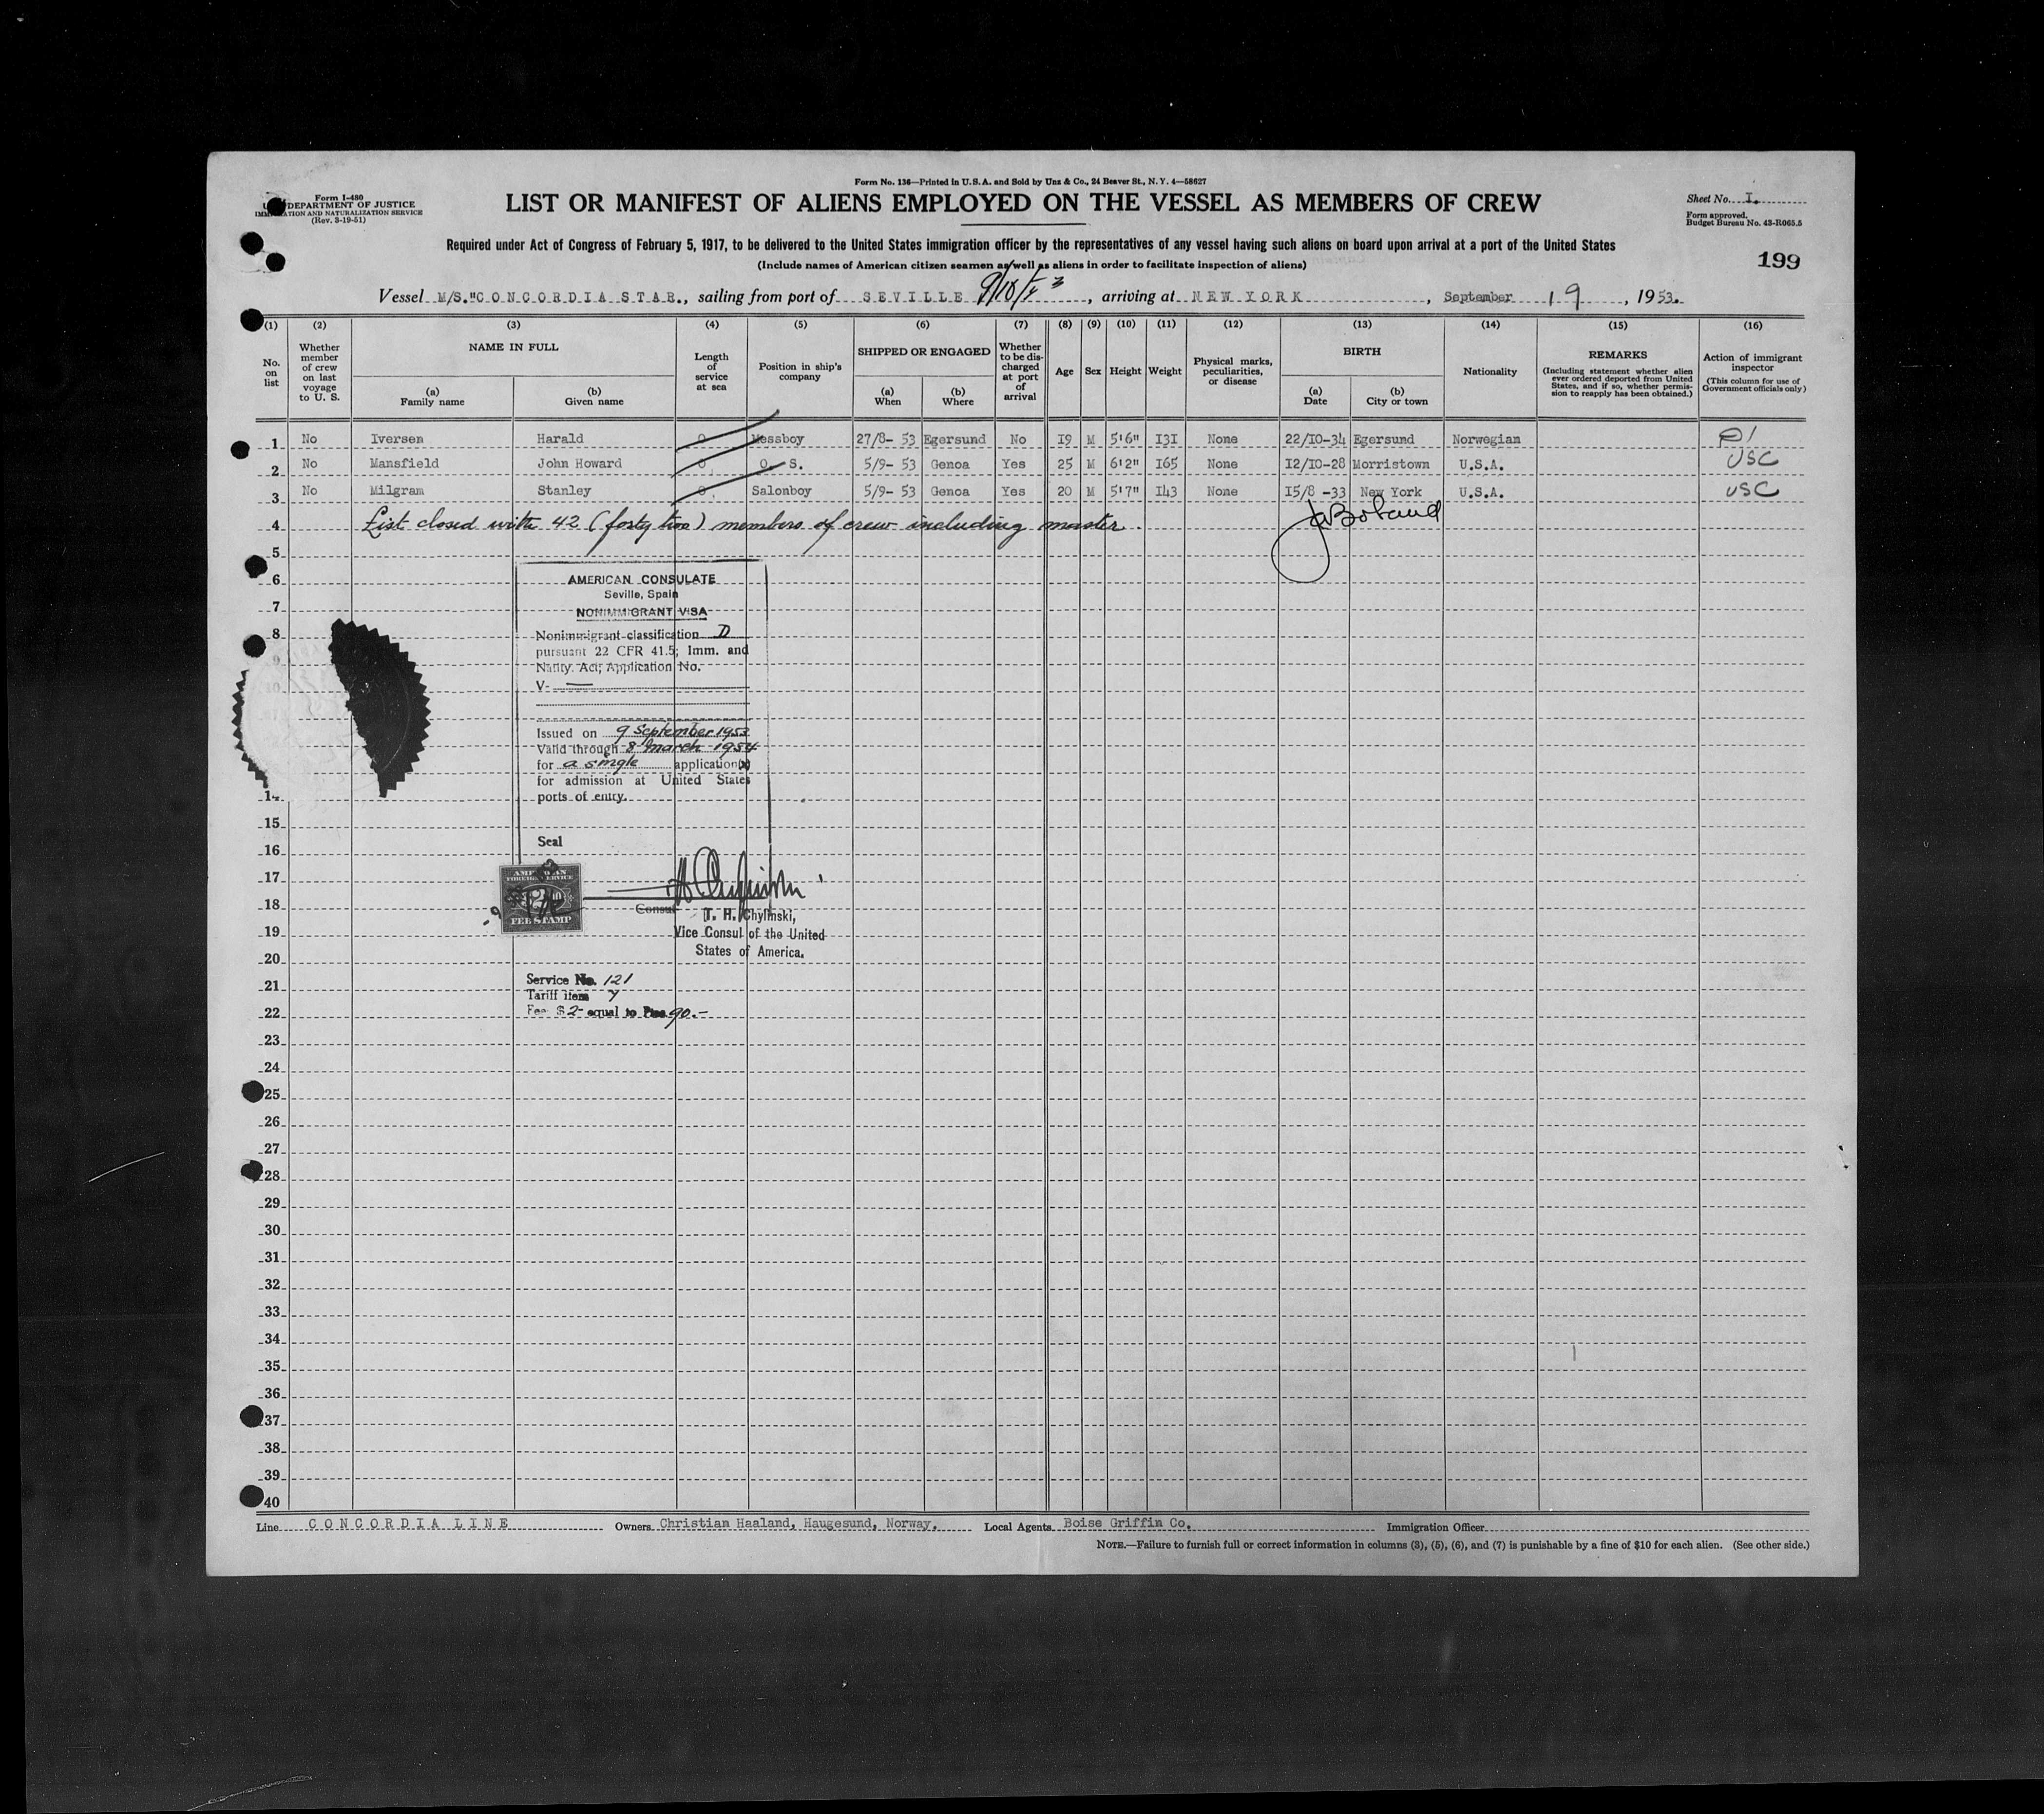 Form No. 136—Printed in U.S.A. and Sold by Unz & Co., 24 Beaver St., N. Y. 4—58627
Form I-480
DEPARTMENT OF JUSTICE
IMMIGRATION AND NATURALIZATION SERVICE
(Rev. 3-19-51)
LIST OR MANIFEST OF ALIENS EMPLOYED ON THE VESSEL AS MEMBERS OF CREW
Sheet No. I.
Form approved.
Budget Bureau No. 43-R065.5
Required under Act of Congress of February 5, 1917, to be delivered to the United States immigration officer by the representatives of any vessel having such aliens on board upon arrival at a port of the United States
(Include names of American citizen seamen as well as aliens in order to facilitate inspection of aliens)
199
Vessel M/S."CONCORDIA STAR., sailing from port of SEVILLE 9/10/53, arriving at NEW YORK, September 19, 1953.
(1) (2) (3) (4) (5) (6) (7) (8) (9) (10) (11) (12) (13) (14) (15) (16)
No. on list
Whether member of crew on last voyage to U. S.
NAME IN FULL
(a) Family name
(b) Given name
Length of service at sea
Position in ship's company
SHIPPED OR ENGAGED
(a) When
(b) Where
Whether to be discharged at port of arrival
Age
Sex
Height
Weight
Physical marks, peculiarities, or disease
BIRTH
(a) Date
(b) City or town
Nationality
REMARKS
(Including statement whether alien ever ordered deported from United States, and if so, whether permission to reapply has been obtained.)
Action of immigrant inspector
(This column for use of Government officials only)
1 No Iversen Harald 0 Messboy 27/8- 53 Egersund No I9 M 5'6" I3I None 22/IO-34 Egersund Norwegian D1
2 No Mansfield John Howard 0, O. S. 5/9- 53 Genoa Yes 25 M 6'2" I65 None I2/IO-28 Morristown U.S.A. USC
3 No Milgram Stanley 0, Salonboy 5/9- 53 Genoa Yes 20 M 5'7" I43 None I5/8 -33 New York U.S.A. USC
4 List closed with 42 (forty two) members of crew including master. JBoland
5
6
7
8
AMERICAN CONSULATE
Seville, Spain
NONIMMIGRANT VISA
Nonimmigrant classification D
pursuant 22 CFR 41.5; Imm. and
Natlty. Act; Application No.
V- —
Issued on 9 September 1953
Valid through 8 March 1954
for a single application(x)
for admission at United States
ports of entry.
Seal
14
15
16
17
18
19
20
21
22
AMERICAN
FOREIGN SERVICE
FEE STAMP
Consul
T. H. Chylinski,
Vice Consul of the United
States of America.
Service No. 121
Tariff item 7
Fee $ 2- equal to Ptas 90.-
23
24
25
26
27
28
29
30
31
32
33
34
35
36
37
38
39
40
Line CONCORDIA LINE Owners Christian Haaland, Haugesund, Norway. Local Agents Boise Griffin Co. Immigration Officer
NOTE.—Failure to furnish full or correct information in columns (3), (5), (6), and (7) is punishable by a fine of $10 for each alien. (See other side.)